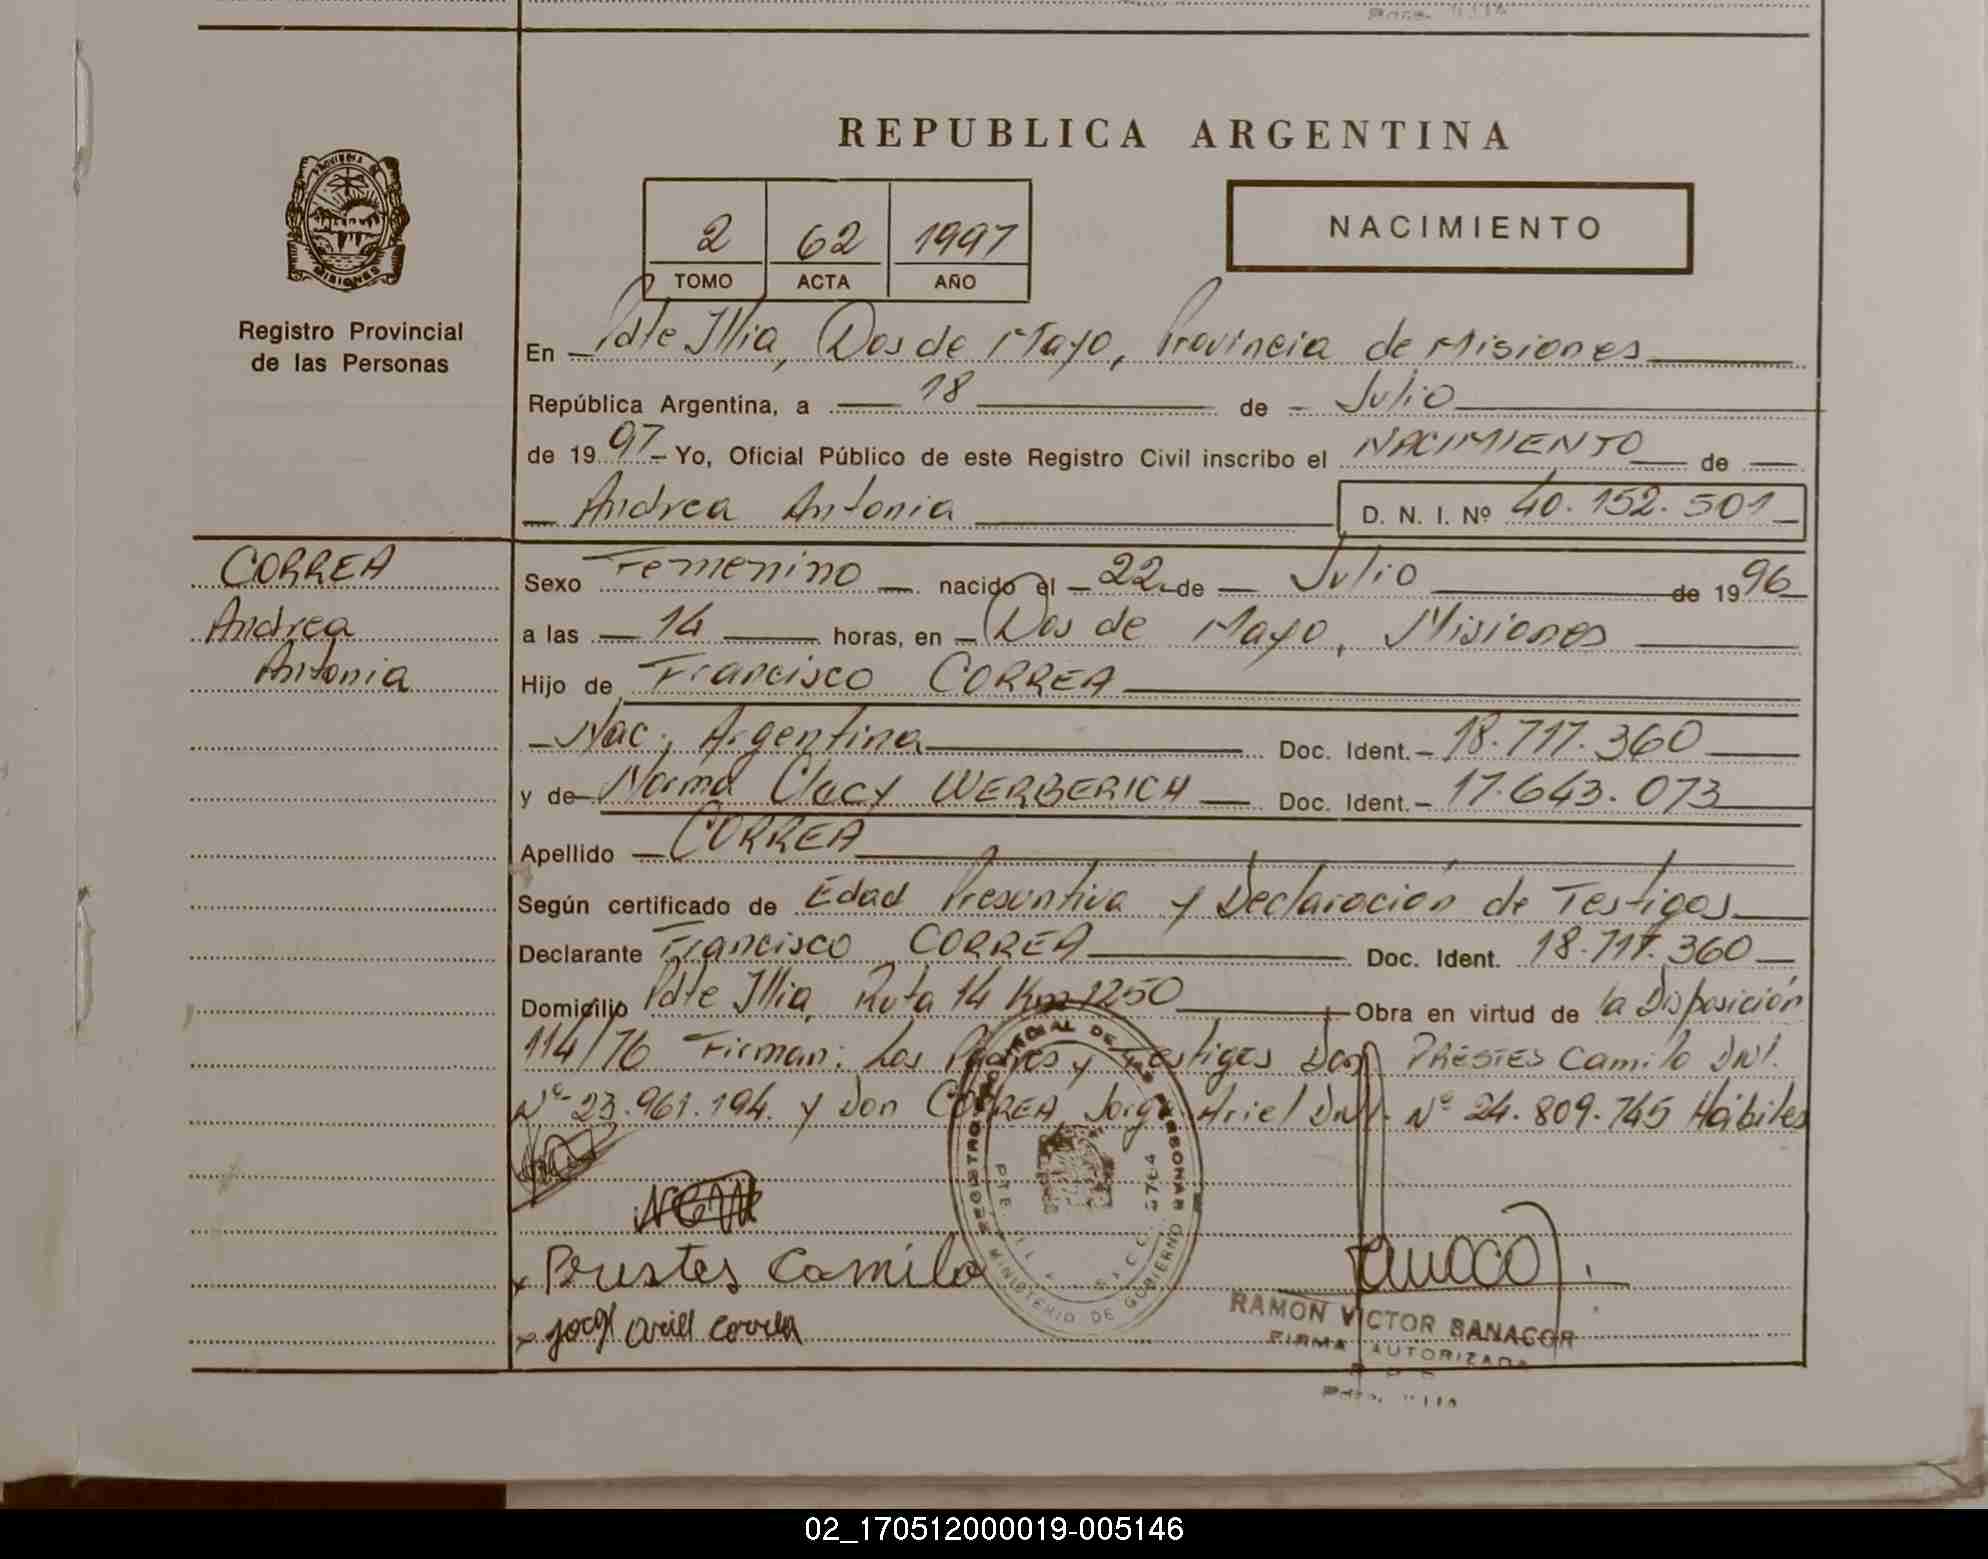 REPUBLICA ARGENTINA
PROVINCIA DE
MISIONES
Registro Provincial
de las Personas
2 62 1997
TOMO ACTA AÑO
NACIMIENTO
En Pdte Illia, Dos de Mayo, Provincia de Misiones
República Argentina, a 18 de Julio
de 1997 Yo, Oficial Público de este Registro Civil inscribo el NACIMIENTO de
Andrea Antonia D. N. I. Nº 40.152.501
CORREA
Andrea
Antonia
Sexo Femenino nacido el 22 de Julio de 1996
a las 14 horas, en Dos de Mayo, Misiones
Hijo de Francisco CORREA
Nac. Argentina Doc. Ident. 18.717.360
y de Norma Clucy WERBERICH Doc. Ident. 17.643.073
Apellido CORREA
Según certificado de Edad Presuntiva y Declaración de Testigos
Declarante Francisco CORREA Doc. Ident. 18.717.360
Domicilio Pdte Illia, Ruta 14 Km 1250 Obra en virtud de la Disposición
114/76 Firman: Los Padres y Testigos Don PRESTES Camilo DNI.
Nº 23.961.194. y Don CORREA Jorge Ariel DNI. Nº 24.809.745 Hábiles
REGISTRO PROVINCIAL DE LAS PERSONAS
MINISTERIO DE GOBIERNO
x Prestes Camilo
x jorgl ariell correa
RAMON VICTOR BANACOR
FIRMA AUTORIZADA
02_170512000019-005146